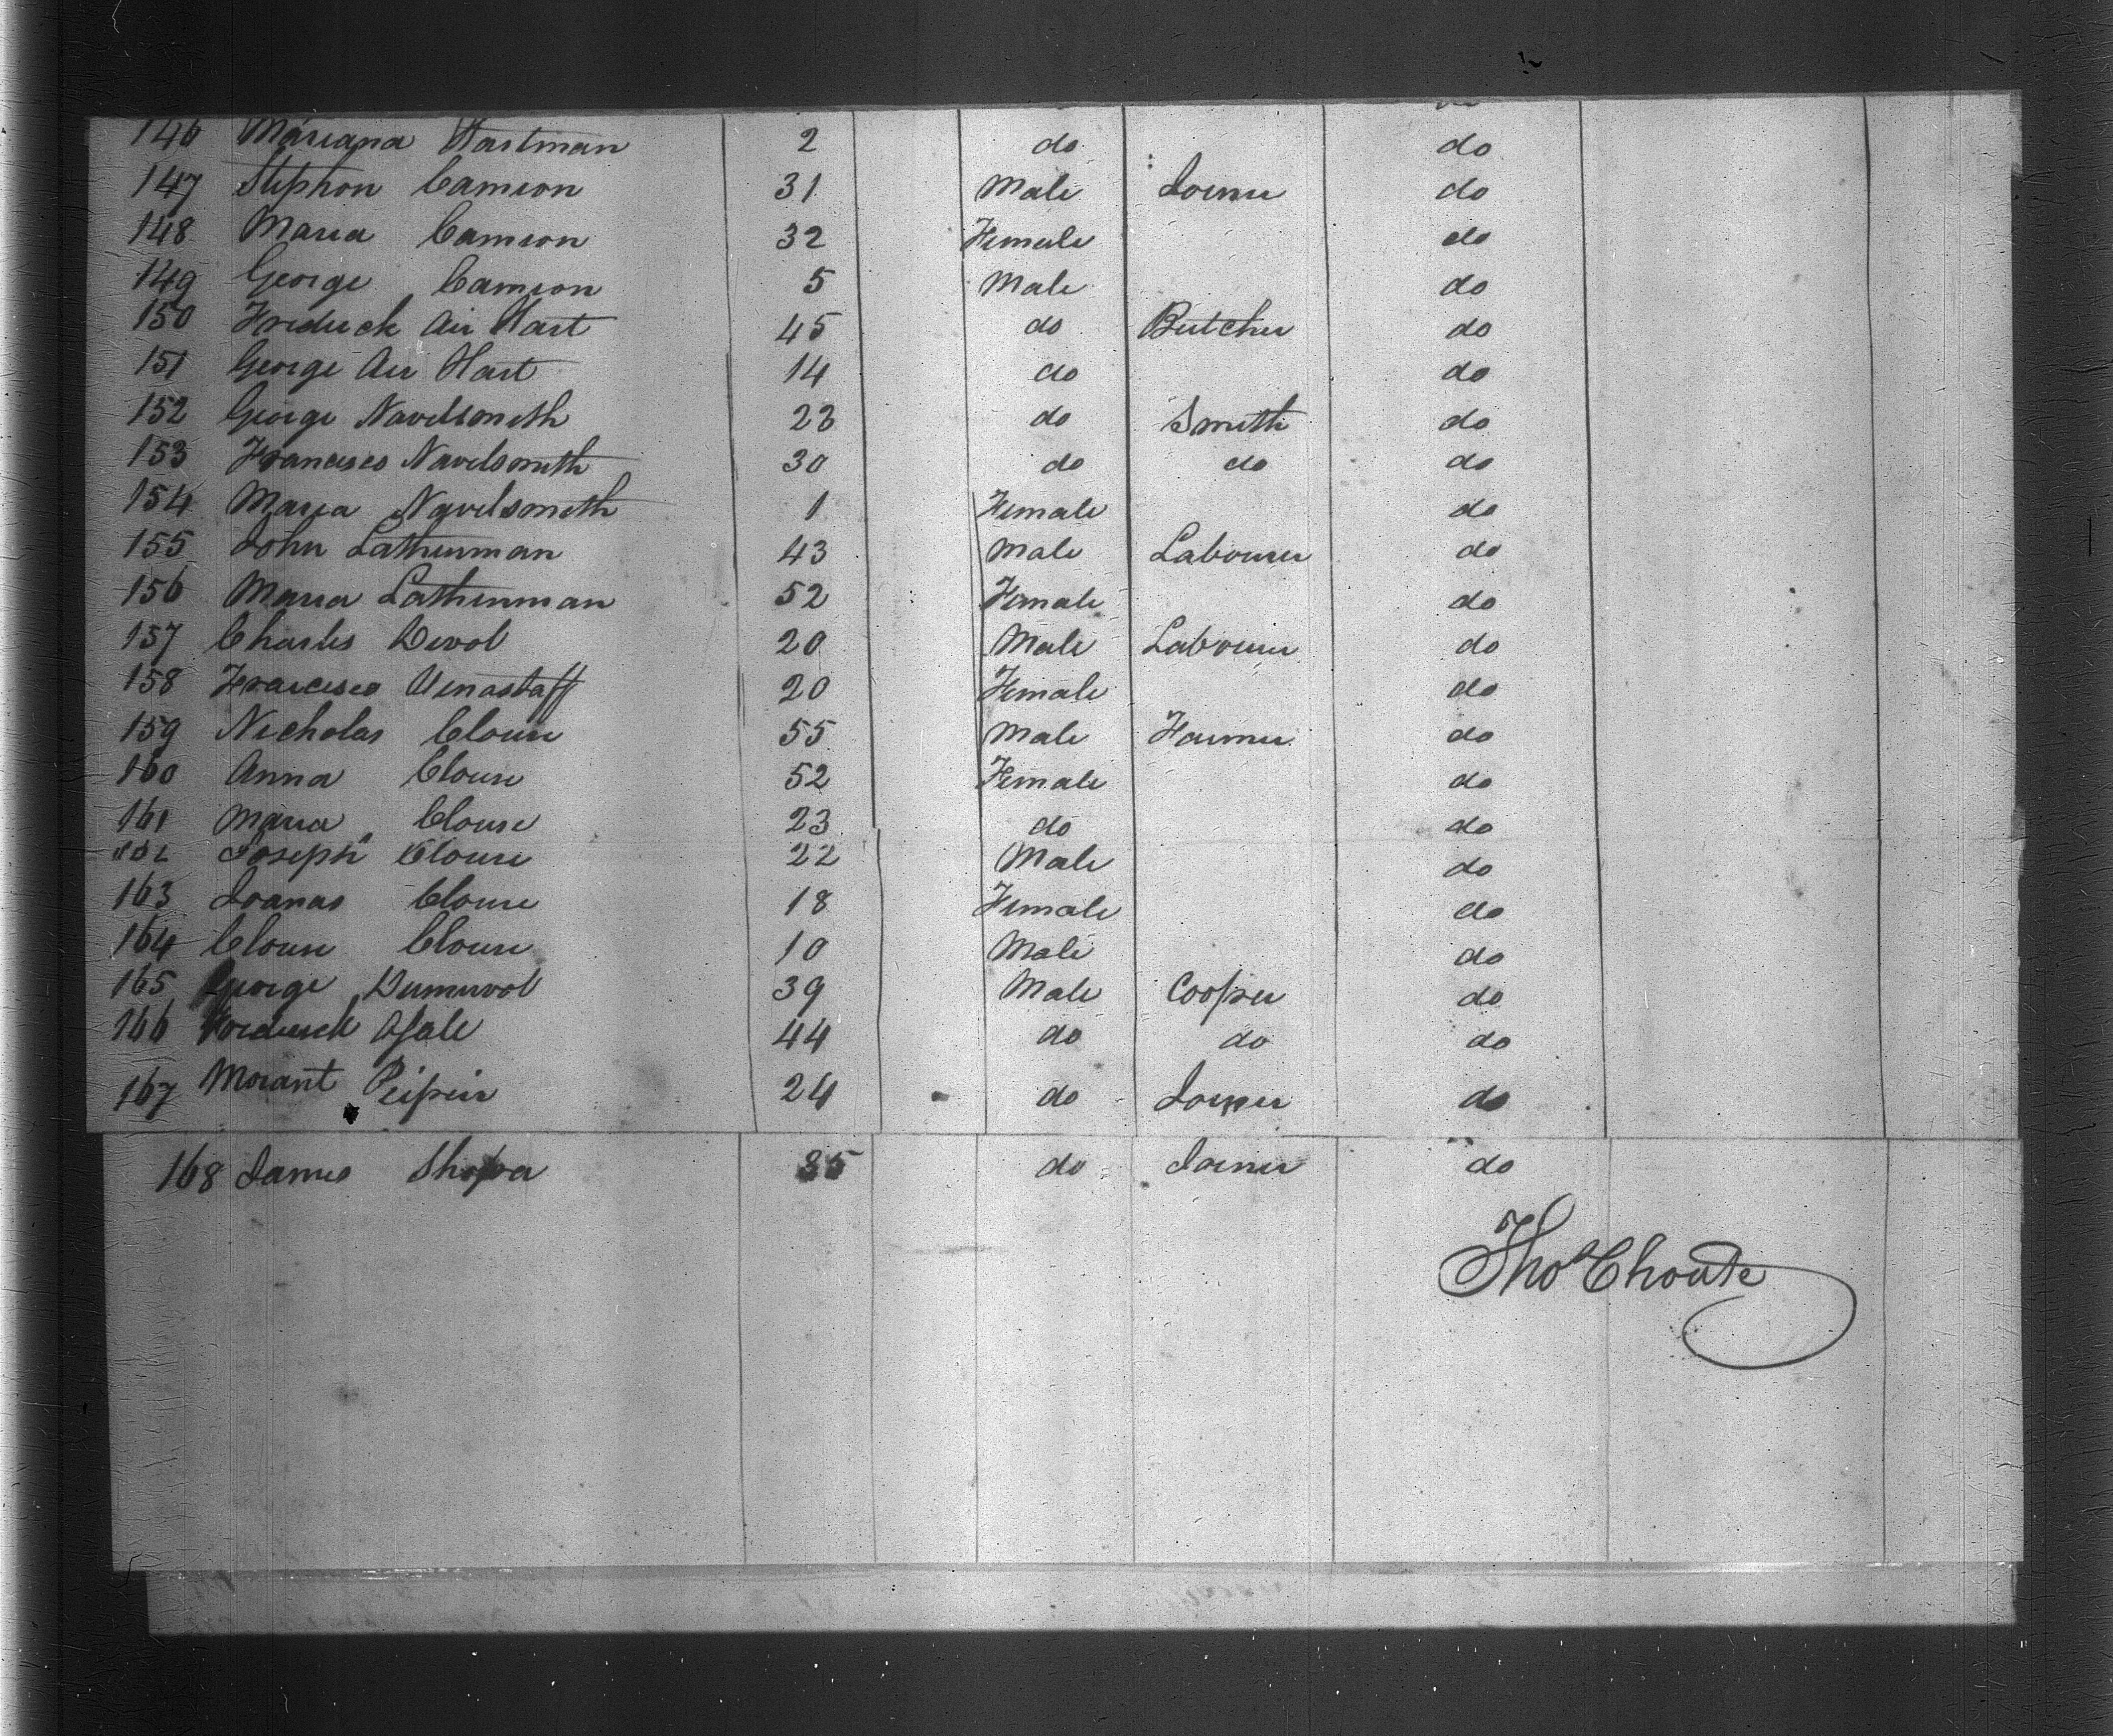 146 Mariana Hartman 2 do do
147 Stephon Camion 31 Male Joiner do
148 Maria Camion 32 Female do
149 George Camion 5 Male do
150 Frederick Air Hart 45 do Butcher do
151 George Air Hart 14 do do
152 George Navelsmith 23 do Smith do
153 Francisco Navelsmith 30 do do do
154 Maria Navelsmith 1 Female do
155 John Latherman 43 Male Labourer do
156 Maria Latherman 52 Female do
157 Charles Devol 20 Male Labourer do
158 Francisco 20 Female do
159 Nicholas Clouse 55 Male Farmer do
160 Anna Clouse 52 Female do
161 Maria Clouse 23 do do
162 Joseph Clouse 22 Male do
163 Joanas Clouse 18 Female do
164 Clouse Clouse 10 Male do
165 George 39 Male Cooper do
166 Frederick 44 do do do
167 Morant 24 do Joiner do
168 James 35 do Joiner do
Thos Choate